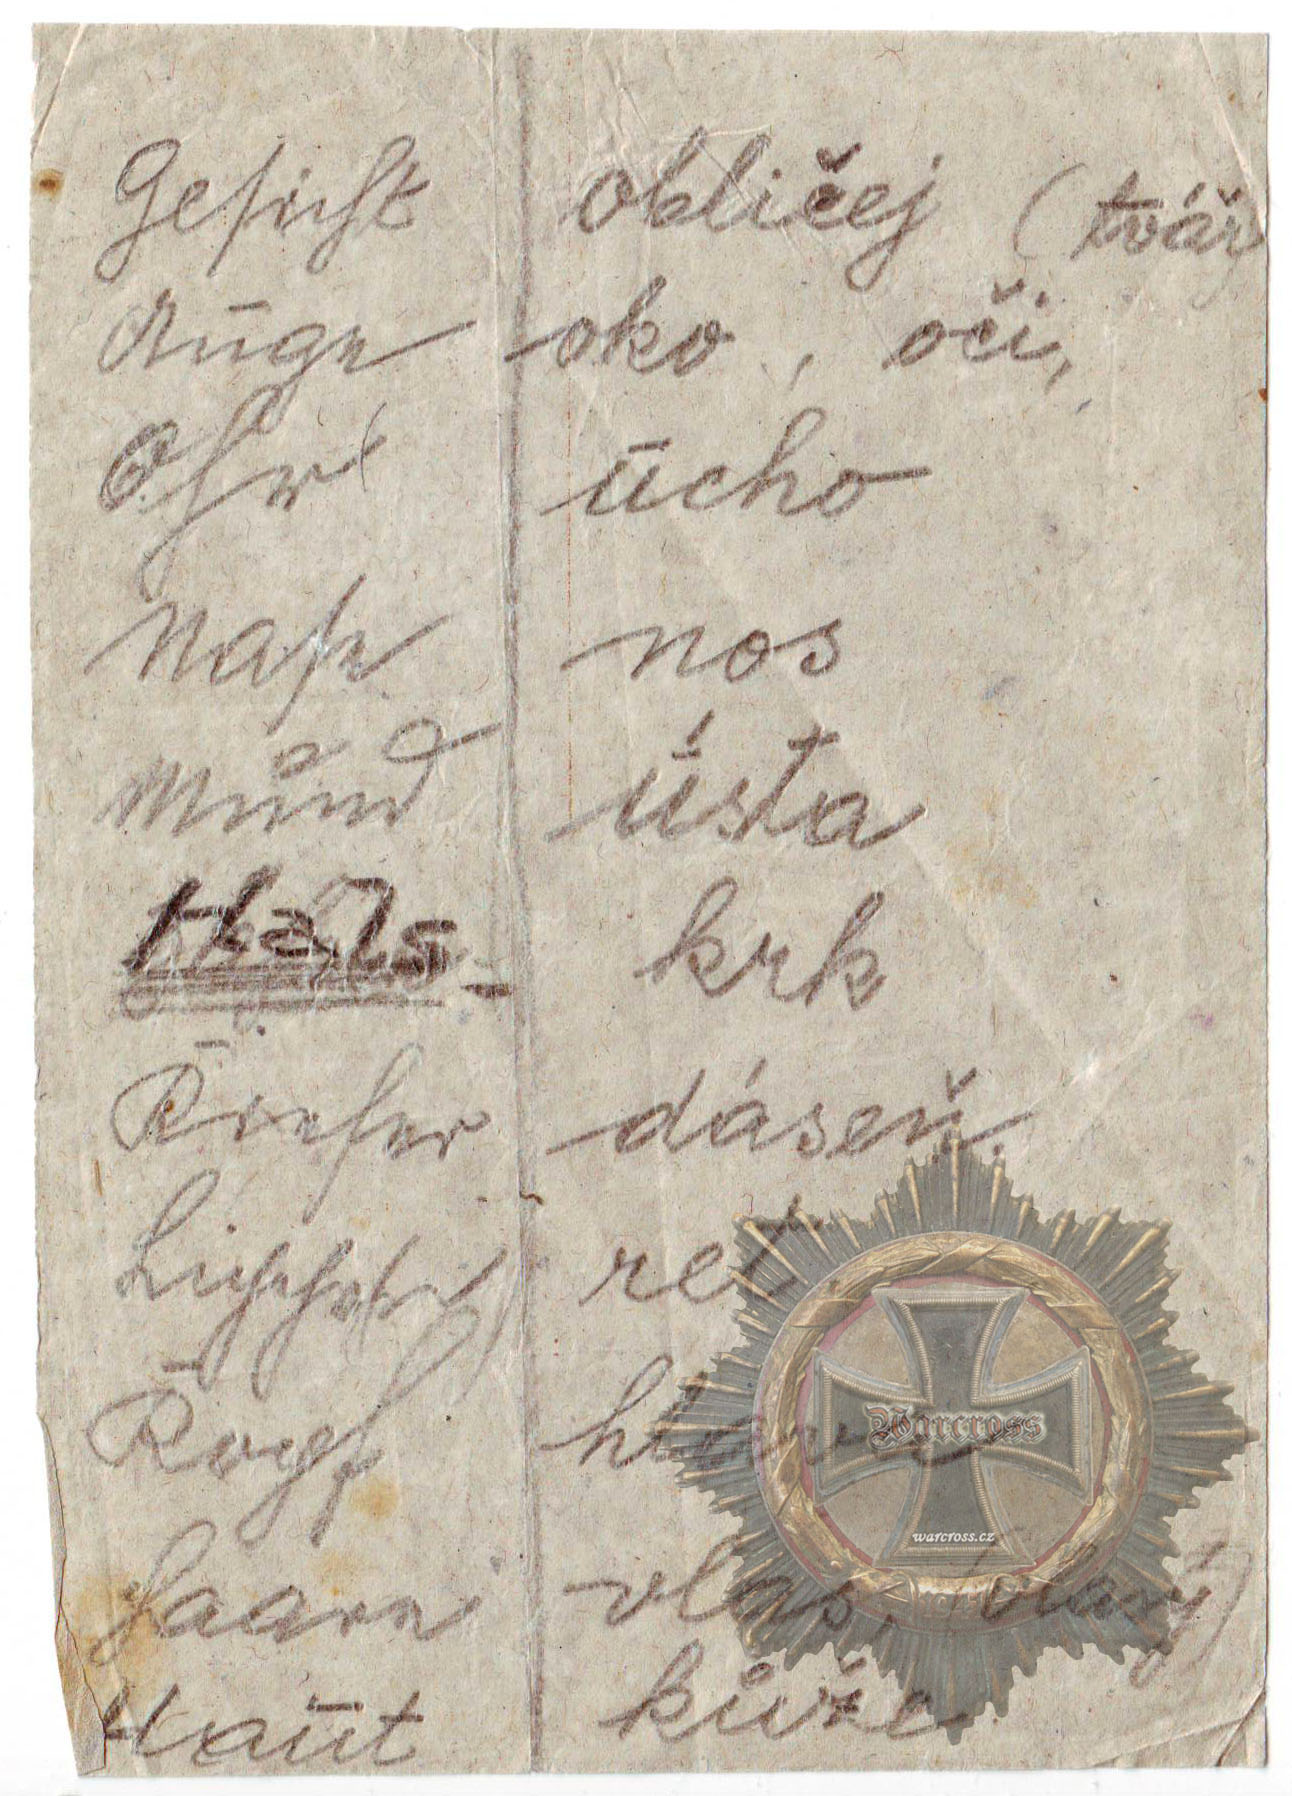 Gesicht obličej (tvář)
Auge oko, oči,
Ohr ucho
Nase nos
Mund ústa
Hals krk
Kiefer dáseň
ret
Kopf hlava
Haare vlas, (vlasy)
Haut kůže
Warcross
warcross.cz